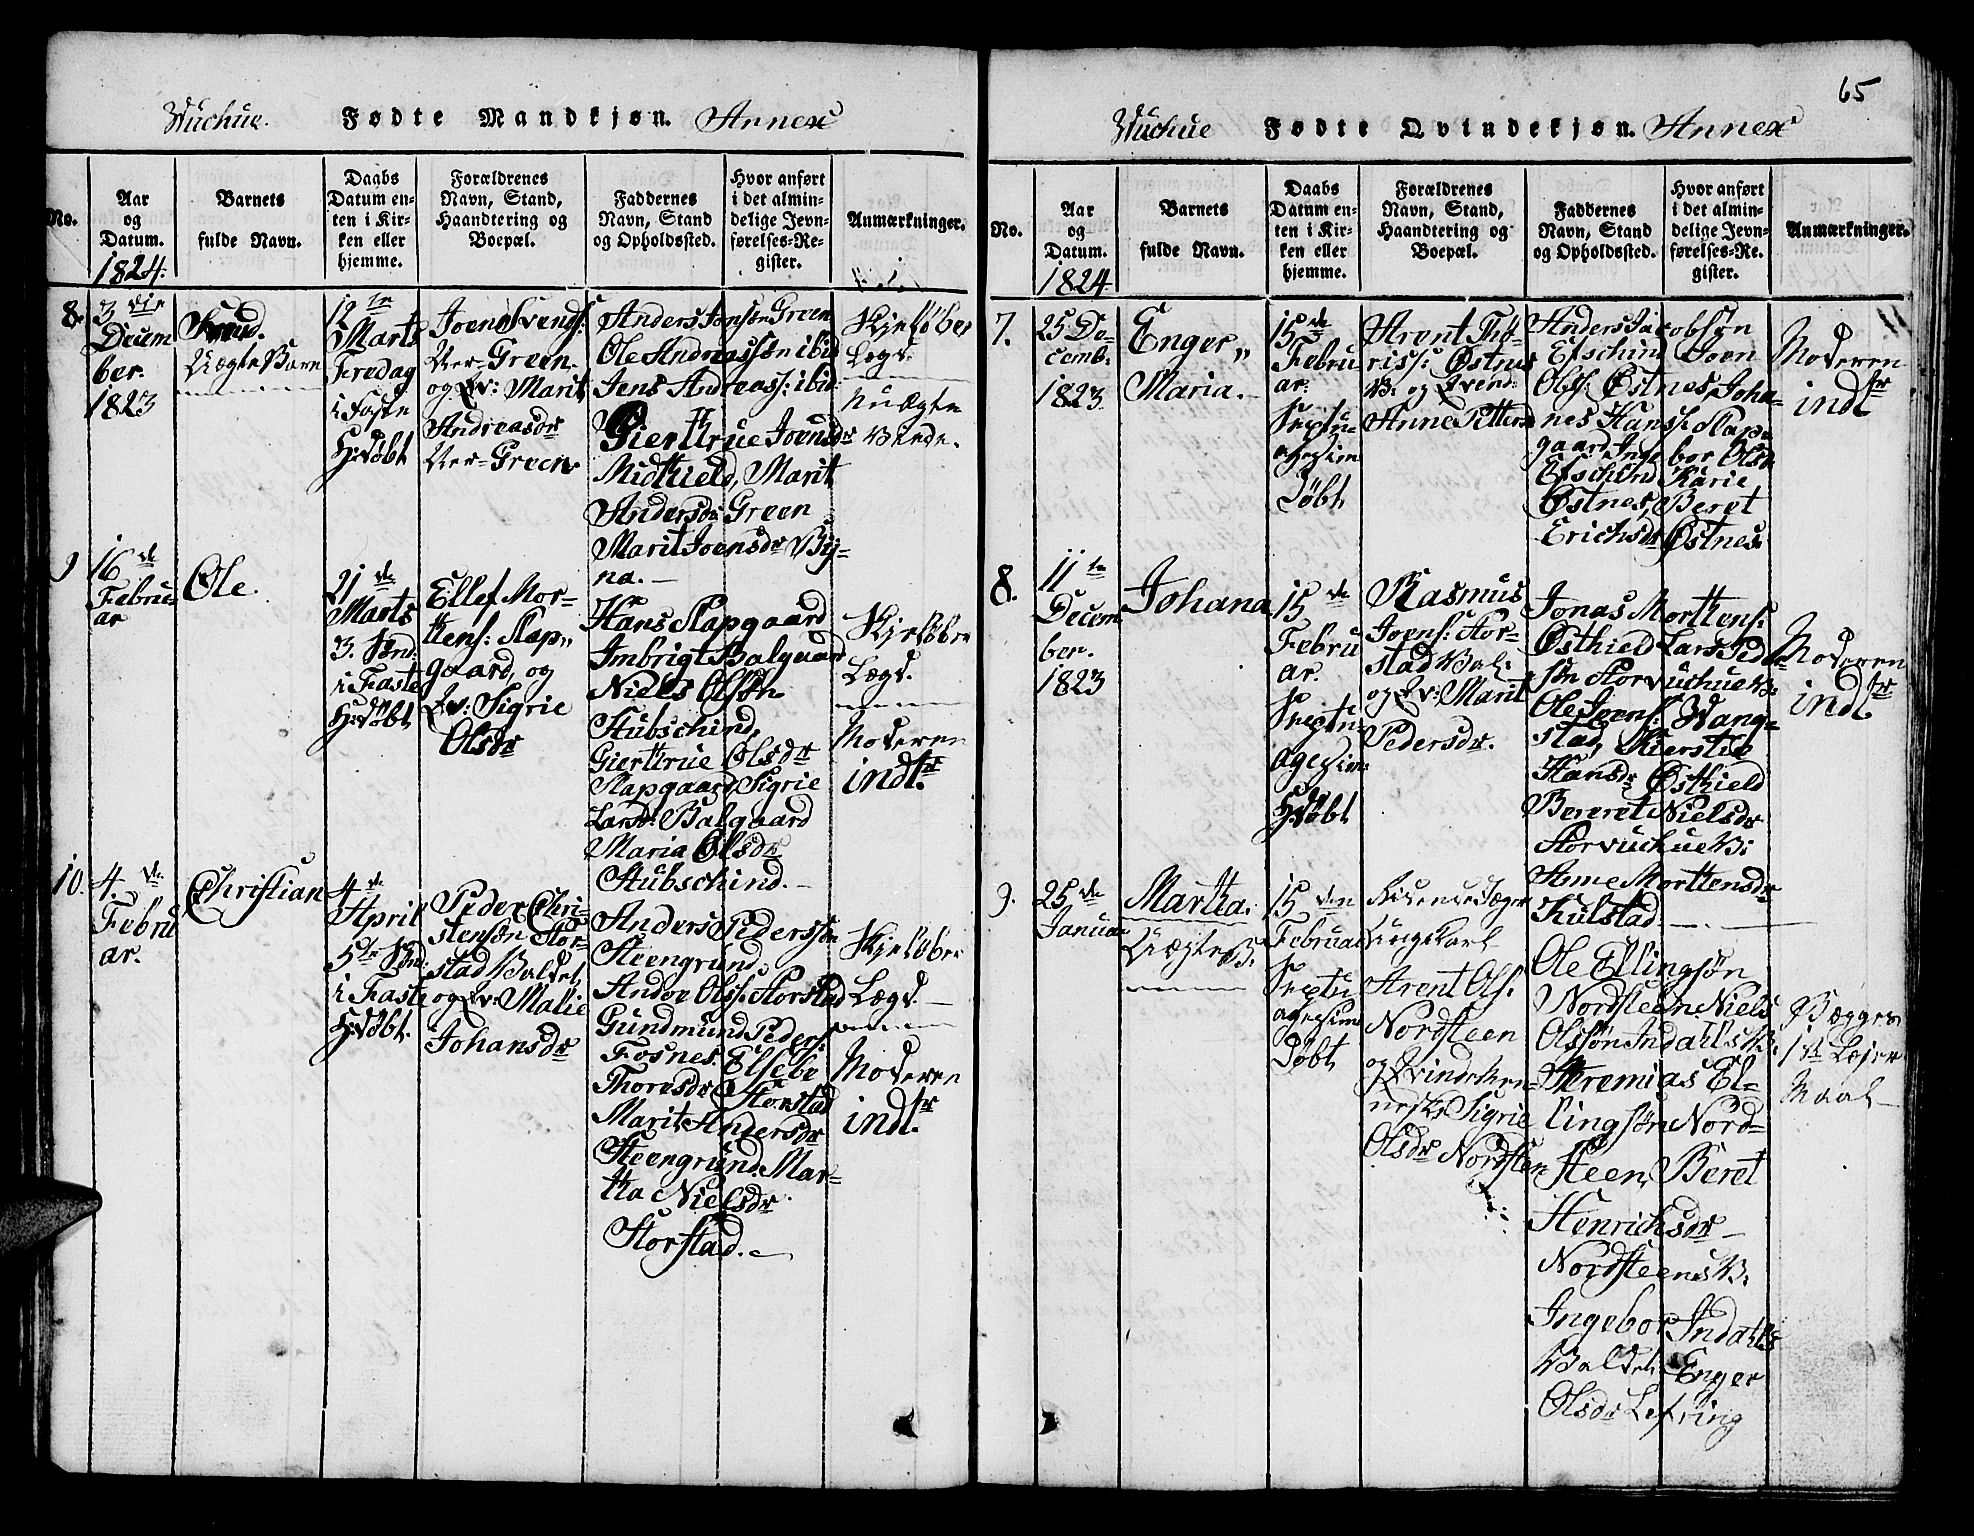 65
Wuchue. Fødte Mandkjøn. Annex
No.
Aar
og
Datum.
1824.
Barnets
fulde Navn.
Daabs
Datum en-
ten i Kir-
ken eller
hjemme.
Forældrenes
Navn, Stand,
Haandtering og
Boepæl.
Faddernes
Navn, Stand
og Opholdssted.
Hvor anført
i det almin-
delige Jevn-
førelses-Re-
gister.
Anmærkninger.
8.
3 die
Decem
ber.
1823
Svend.
Uægte Barn
12 te
Marts
Fredag
i Faste
H:døbt
Joen Svends:
Ver-Green
og Qv: Marit
Andreasdr
Ver-Green
Anders Jonsøn Green
Ole Andreassøn ibid
Jens Andreass: ibid
Gierttrue Joensdr
Midthield, Marit
Andersdr Green
Marit Joensdr By-
na.
Skieløber
Legd.
Nu ægte
Viede.
9
16 de
Februe-
ar
Ole.
21 de
Marts
3. Sønd:
i Faste
H:døbt
Ellef Mor-
ttens: Slap-
gaard, og
Qv: Sigrie
Olsdr
Hans Slapgaard
Imbrigt Balgaard
Niels Olsøn
Stubschind,
Gierttrue Olsdr
Slapgaard, Sigrie
Larsdr Balgaard
Maria Olsdr
Stubschind.
Skieløber
Lægd.
Moderen
indt.
10.
4. de
Febru
ar.
Christian
4 de
April
5te Sønd:
i Faste
H:døbt.
Peder Chri-
stensøn Stor-
stad Valdet,
og Qv: Malie
Johansdr
Anders Pederssøn
Steengrund
Andor Olss: Storstad
Gundmund Peders:
Fosnes. Elsebe
Thoresdr Storstad
Marit Andersdr
Steengrund, Mar-
tha Nielsdr
Storstad.
Skieløber
Lægd.
Moderen
indt.
Wuchue Fødte Qvindekjøn. Annex
No.
Aar
og
Datum.
1824
Barnets
fulde Navn.
Daabs
Datum en-
ten i Kir-
ken eller
hjemme.
Forældrenes
Navn, Stand,
Haandtering og
Boepæl.
Faddernes
Navn, Stand
og Opholdssted.
Hvor anført
i det almin-
delige Jevn-
førelses-Re-
gister.
Anmærkninger.
7.
25 De-
cemb.
1823
Enger
Maria.
15 de
Febru
ar.
Septu-
agesim
Døbt
Arent Tho-
riss: Østnes
V. og Qvend:
Anne Petters
Anders Jacobsøn
Efschind, Joen
Olss: Østnes, Joha-
nes Hanss: Slap-
gaard, Inge bor Olsdr
Efschind Karie
Østnes, Beret
Erichsdr Østnes
Moderen
indt
8.
11 te
Decem
ber.
1823
Johana
15 de
Febru
ar.
Septu-
agesim:
H:døbt
Rasmus
Joens: Stor-
stad Val:
og Qv: Marit
Pedersdr.
Jonas Morttens:
Østhield Lars Peder-
søn Storvuchue V:
Ole Joens: Wang-
stad, Kierstie
Hansdr Østhield
Bereret Nielsdr
Storvuchue V:
Anne Morttensdr
Kulstad
Moderen
indt
9.
25 de
Janua-
Martha.
Uægte B:
15 den
Februar
Septu
agesim
Døbt
Unge Karl
Arent Ols:
Nordsteen
og Qvindemen-
neske Sigrie
Olsdr Nordsten
Ole Ellingsøn
Nordsteen, Niels
Olssøn Indahls V:
Jeremias El-
lingsøn Nord-
steen, Beret
Henrichsdr
Nordsteens V:
Ingebor Indahls
Valdet Enger
Olsdr Lefring
Begges
1ste Lejer
Maal